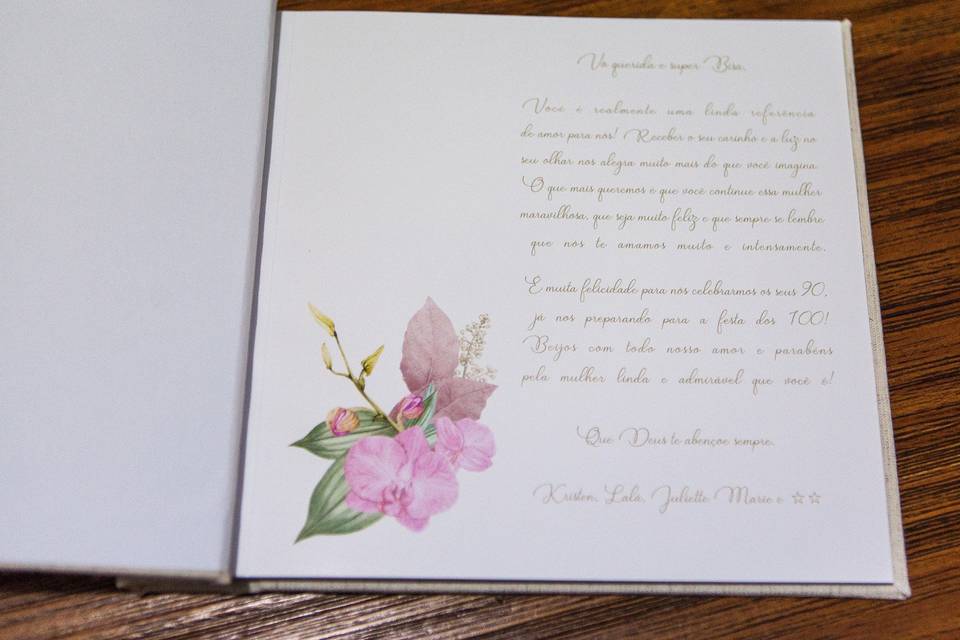 Vó querida e super Bisa,
Você é realmente uma linda referência
de amor para nós! Receber o seu carinho e a luz no
seu olhar nos alegra muito mais do que você imagina.
O que mais queremos é que você continue essa mulher
maravilhosa, que seja muito feliz e que sempre se lembre
que nós te amamos muito e intensamente.
É muita felicidade para nós celebrarmos os seus 90,
já nos preparando para a festa dos 100!
Beijos com todo nosso amor e parabéns
pela mulher linda e admirável que você é!
Que Deus te abençoe sempre.
Kristen, Lala, Juliette Marie e ☆☆